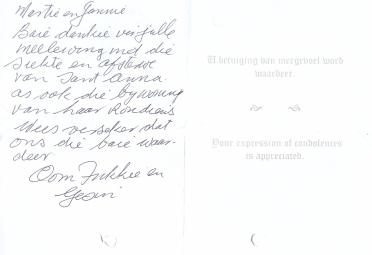 Martie en Jannie
Baie dankie vir julle
meelewing met die
siekte en afsterwe
van Tant Anna
as ook die bywoning
van haar Roudiens
Wees verseker dat
ons die baie waar-
deer
Oom Fukkie en
Gesin
U betuiging van meegevoel word
waardeer.
Your expression of condolences
is appreciated.